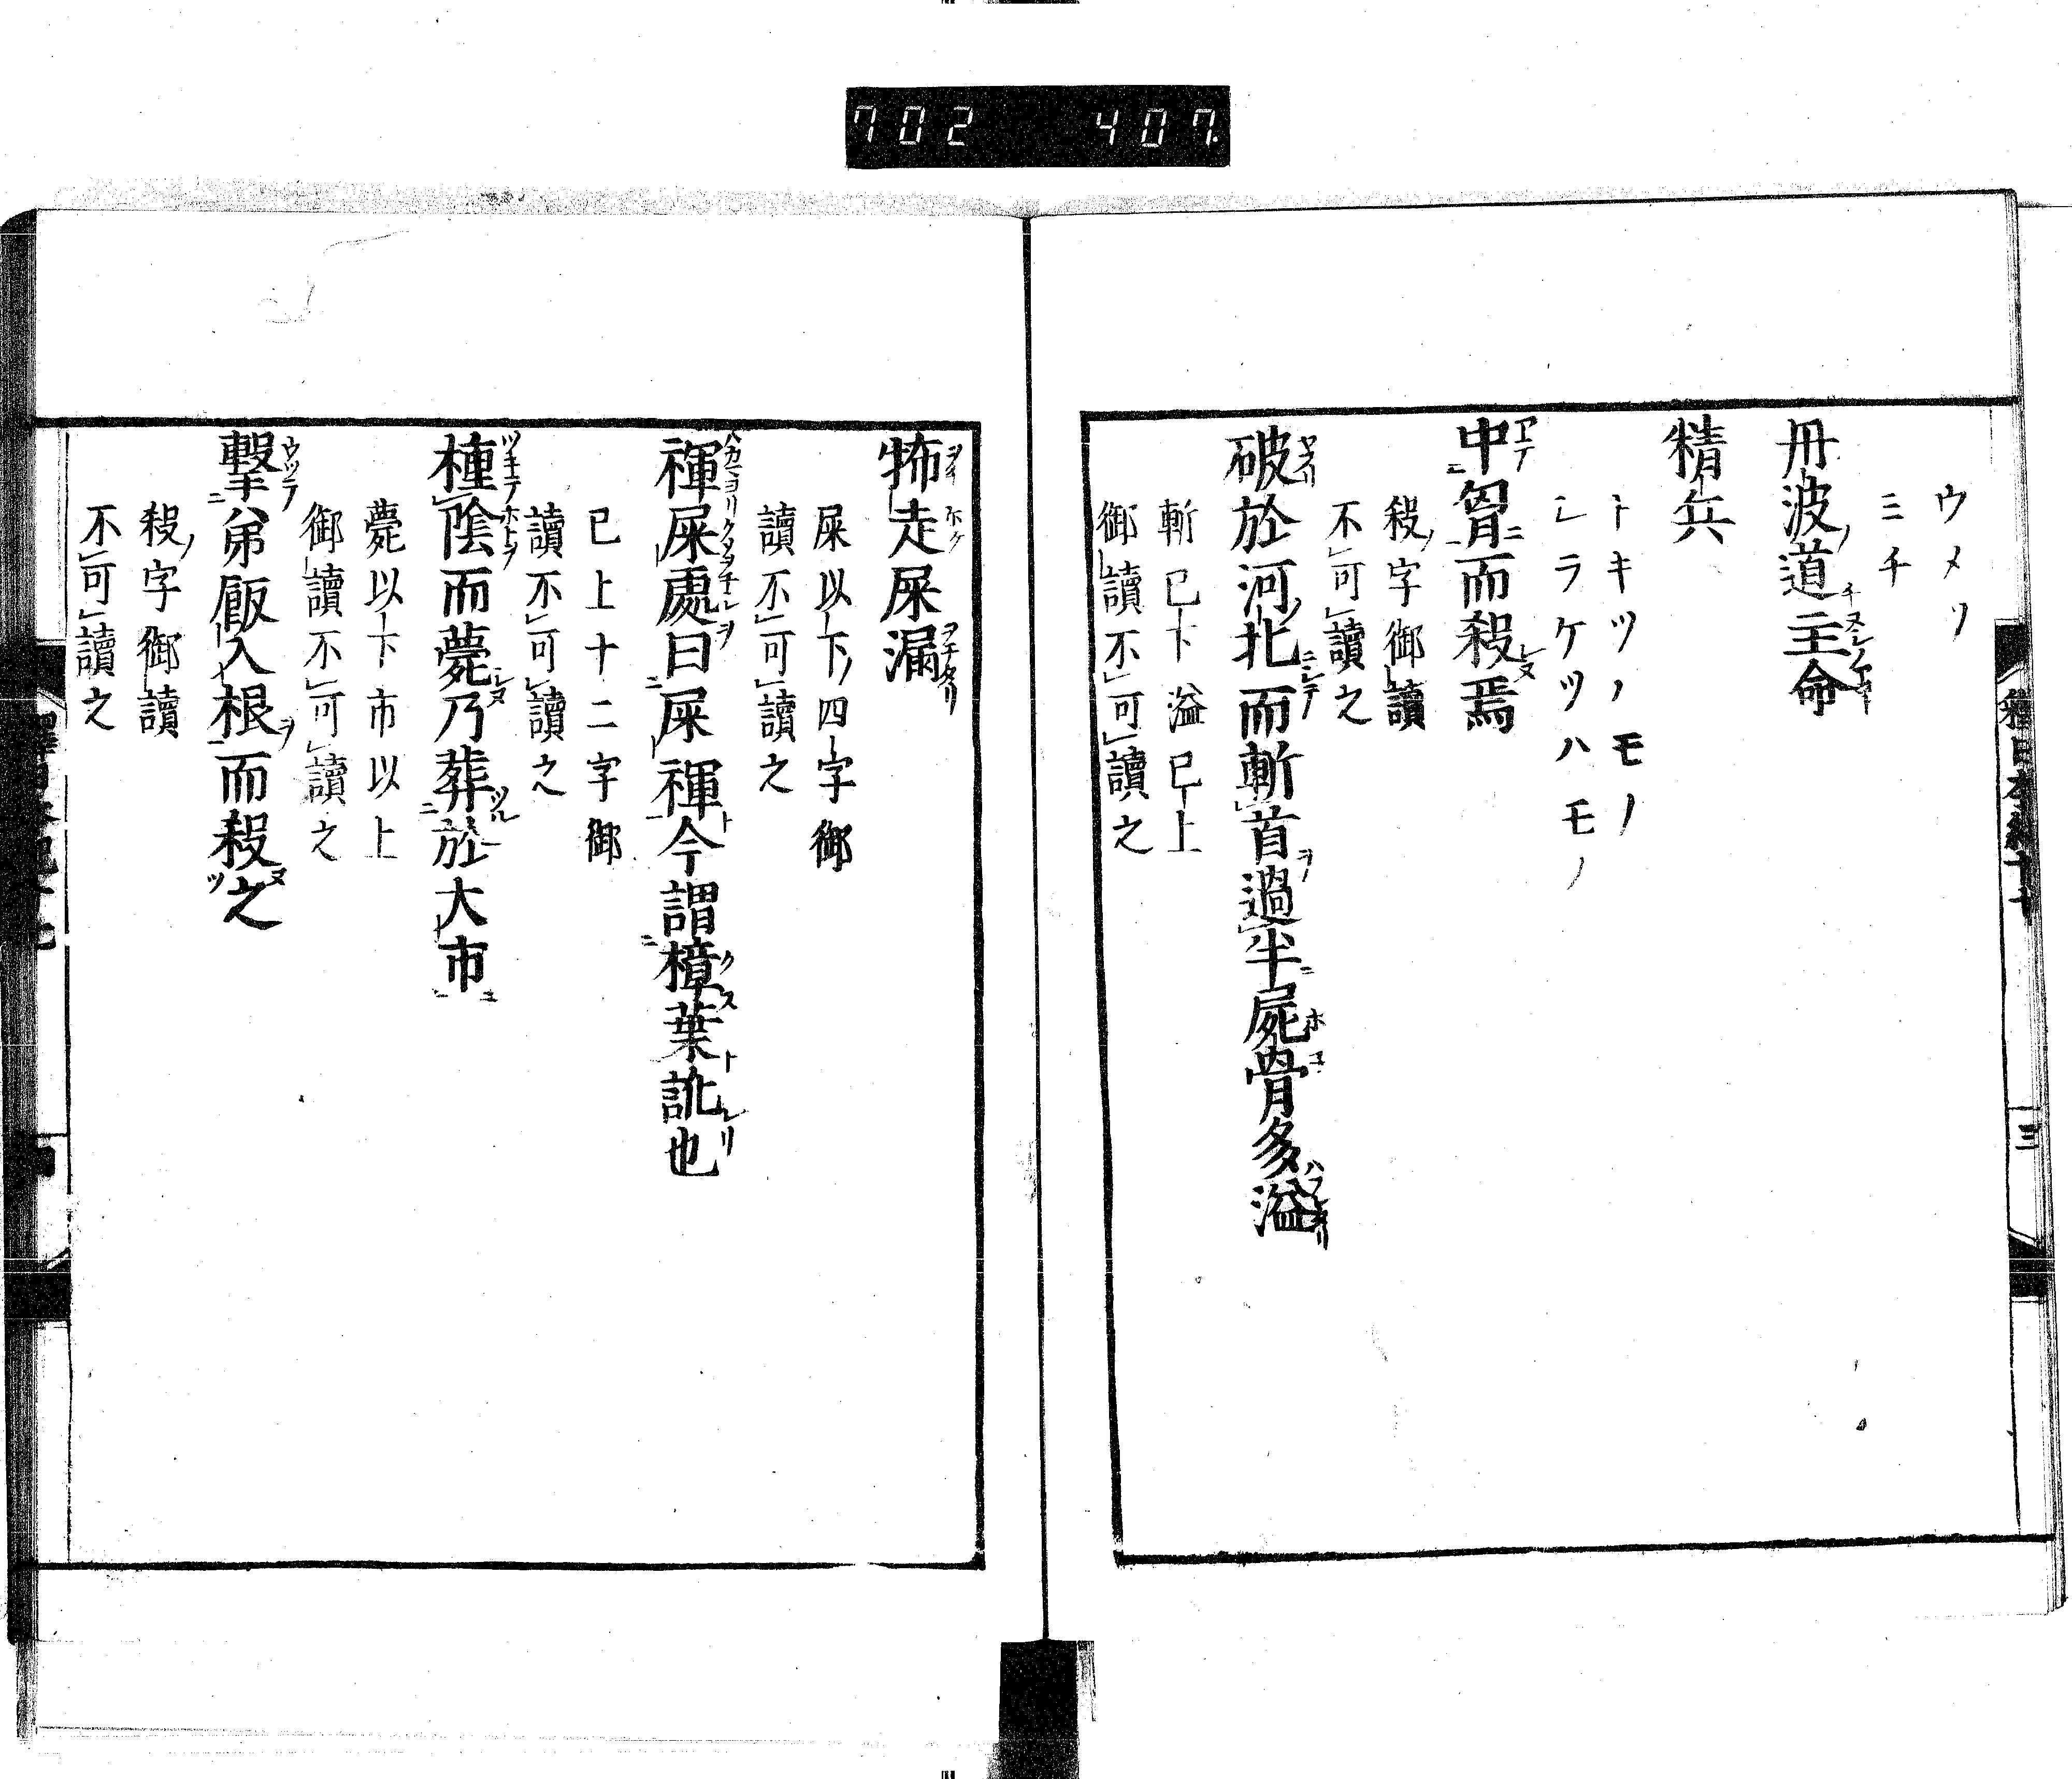 702 407
ウメリ
ミチ
丹波道主命
精兵
トキツノモノ
シラケツハモノ
中胷而殺焉
殺ノ字御讀
不可讀之
破於河北而斬首過半屍骨多溢
斬已下溢已上
御讀不可讀之
怖走屎漏
屎以下ノ四字御
讀不可讀之
褌屎處曰屎褌今謂樟葉訛也
已上十二字御
讀不可讀之
橦陰而薨乃葬於大市
薨以下市以上
御讀不可讀之
擊弟飯入根而殺之
殺ノ字御讀
不可讀之